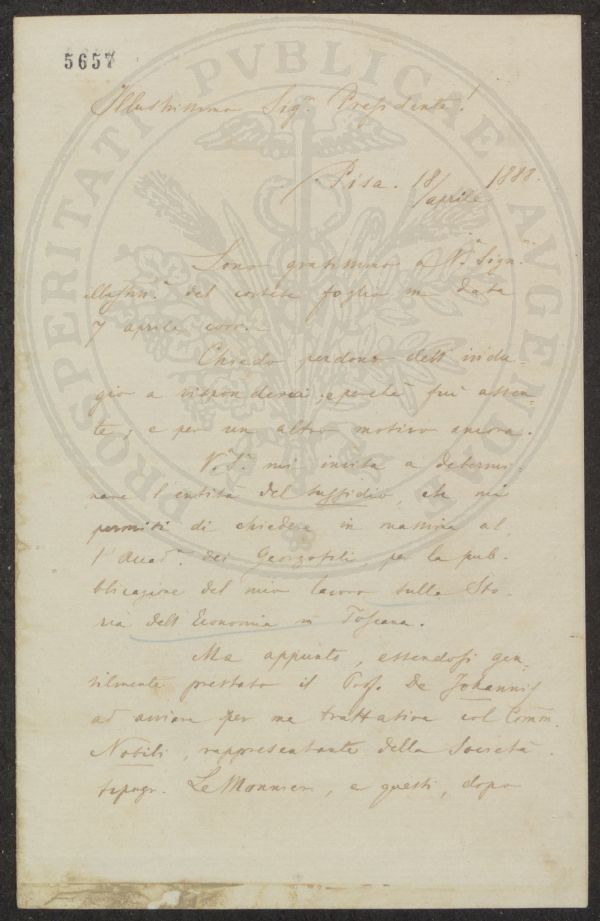 5657
PROSPERITATI PVBLICAE AVGENDAE
Illustrissimo Sigr. Presidente!
Pisa. 18/aprile 1888.
Sono gratissimo a Va. Sign.
illustriss. del cortese foglio in data
7 aprile corr.
Chiedo perdono dell' indu-
gio a rispondere; e perchè fui assen-
te, e per un altro motivo ancora.
V.S. mi invita a determi-
nare l'entità del sussidio, che mi
permisi di chiedere in massima al-
l'Accad. dei Georgofili, per la pub-
blicazione del mio lavoro sulla Sto-
ria dell' Economia in Toscana.
Ma appunto, essendosi gen-
tilmente prestato il Prof. De Johannis
ad avviare per me trattative col Comm.
Nobili, rappresentante della Società
tipogr. Le Monnier, e questi, dopo